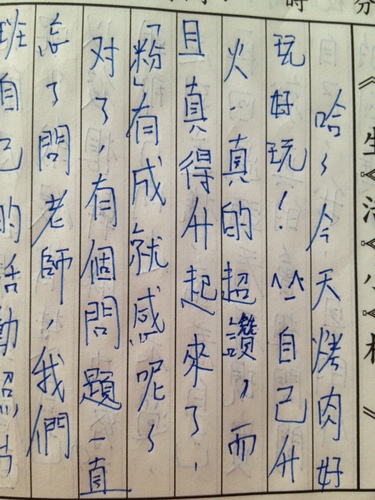 時 分
《生活《小
哈哈今天烤肉好
玩好玩！^^自己升
火，真的超讚，而
且真得升起來了，
「粉」有成就感呢～
对了，有個問題一直
忘了問老師，我們
班自己的活動照片